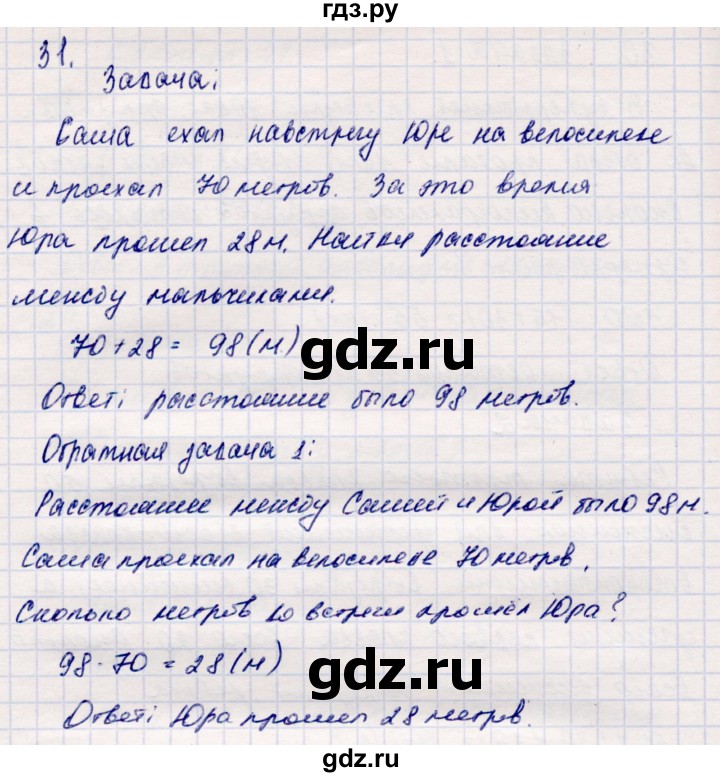 гдз.ру
31.
Задача:
Саша ехал навстречу Юре на велосипеде
и проехал 70 метров. За это время
Юра прошел 28 м. Найти расстояние
между мальчиками.
70 + 28 = 98 (м.)
gdz.ru
Ответ: расстояние было 98 метров.
Обратная задача 1:
Расстояние между Сашей и Юрой было 98 м.
Саша проехал на велосипеде 70 метров,
Сколько метров до встречи прошел Юра?
98 - 70 = 28 (м)
gdz.ru
Ответ: Юра прошел 28 метров.
gdz.ru